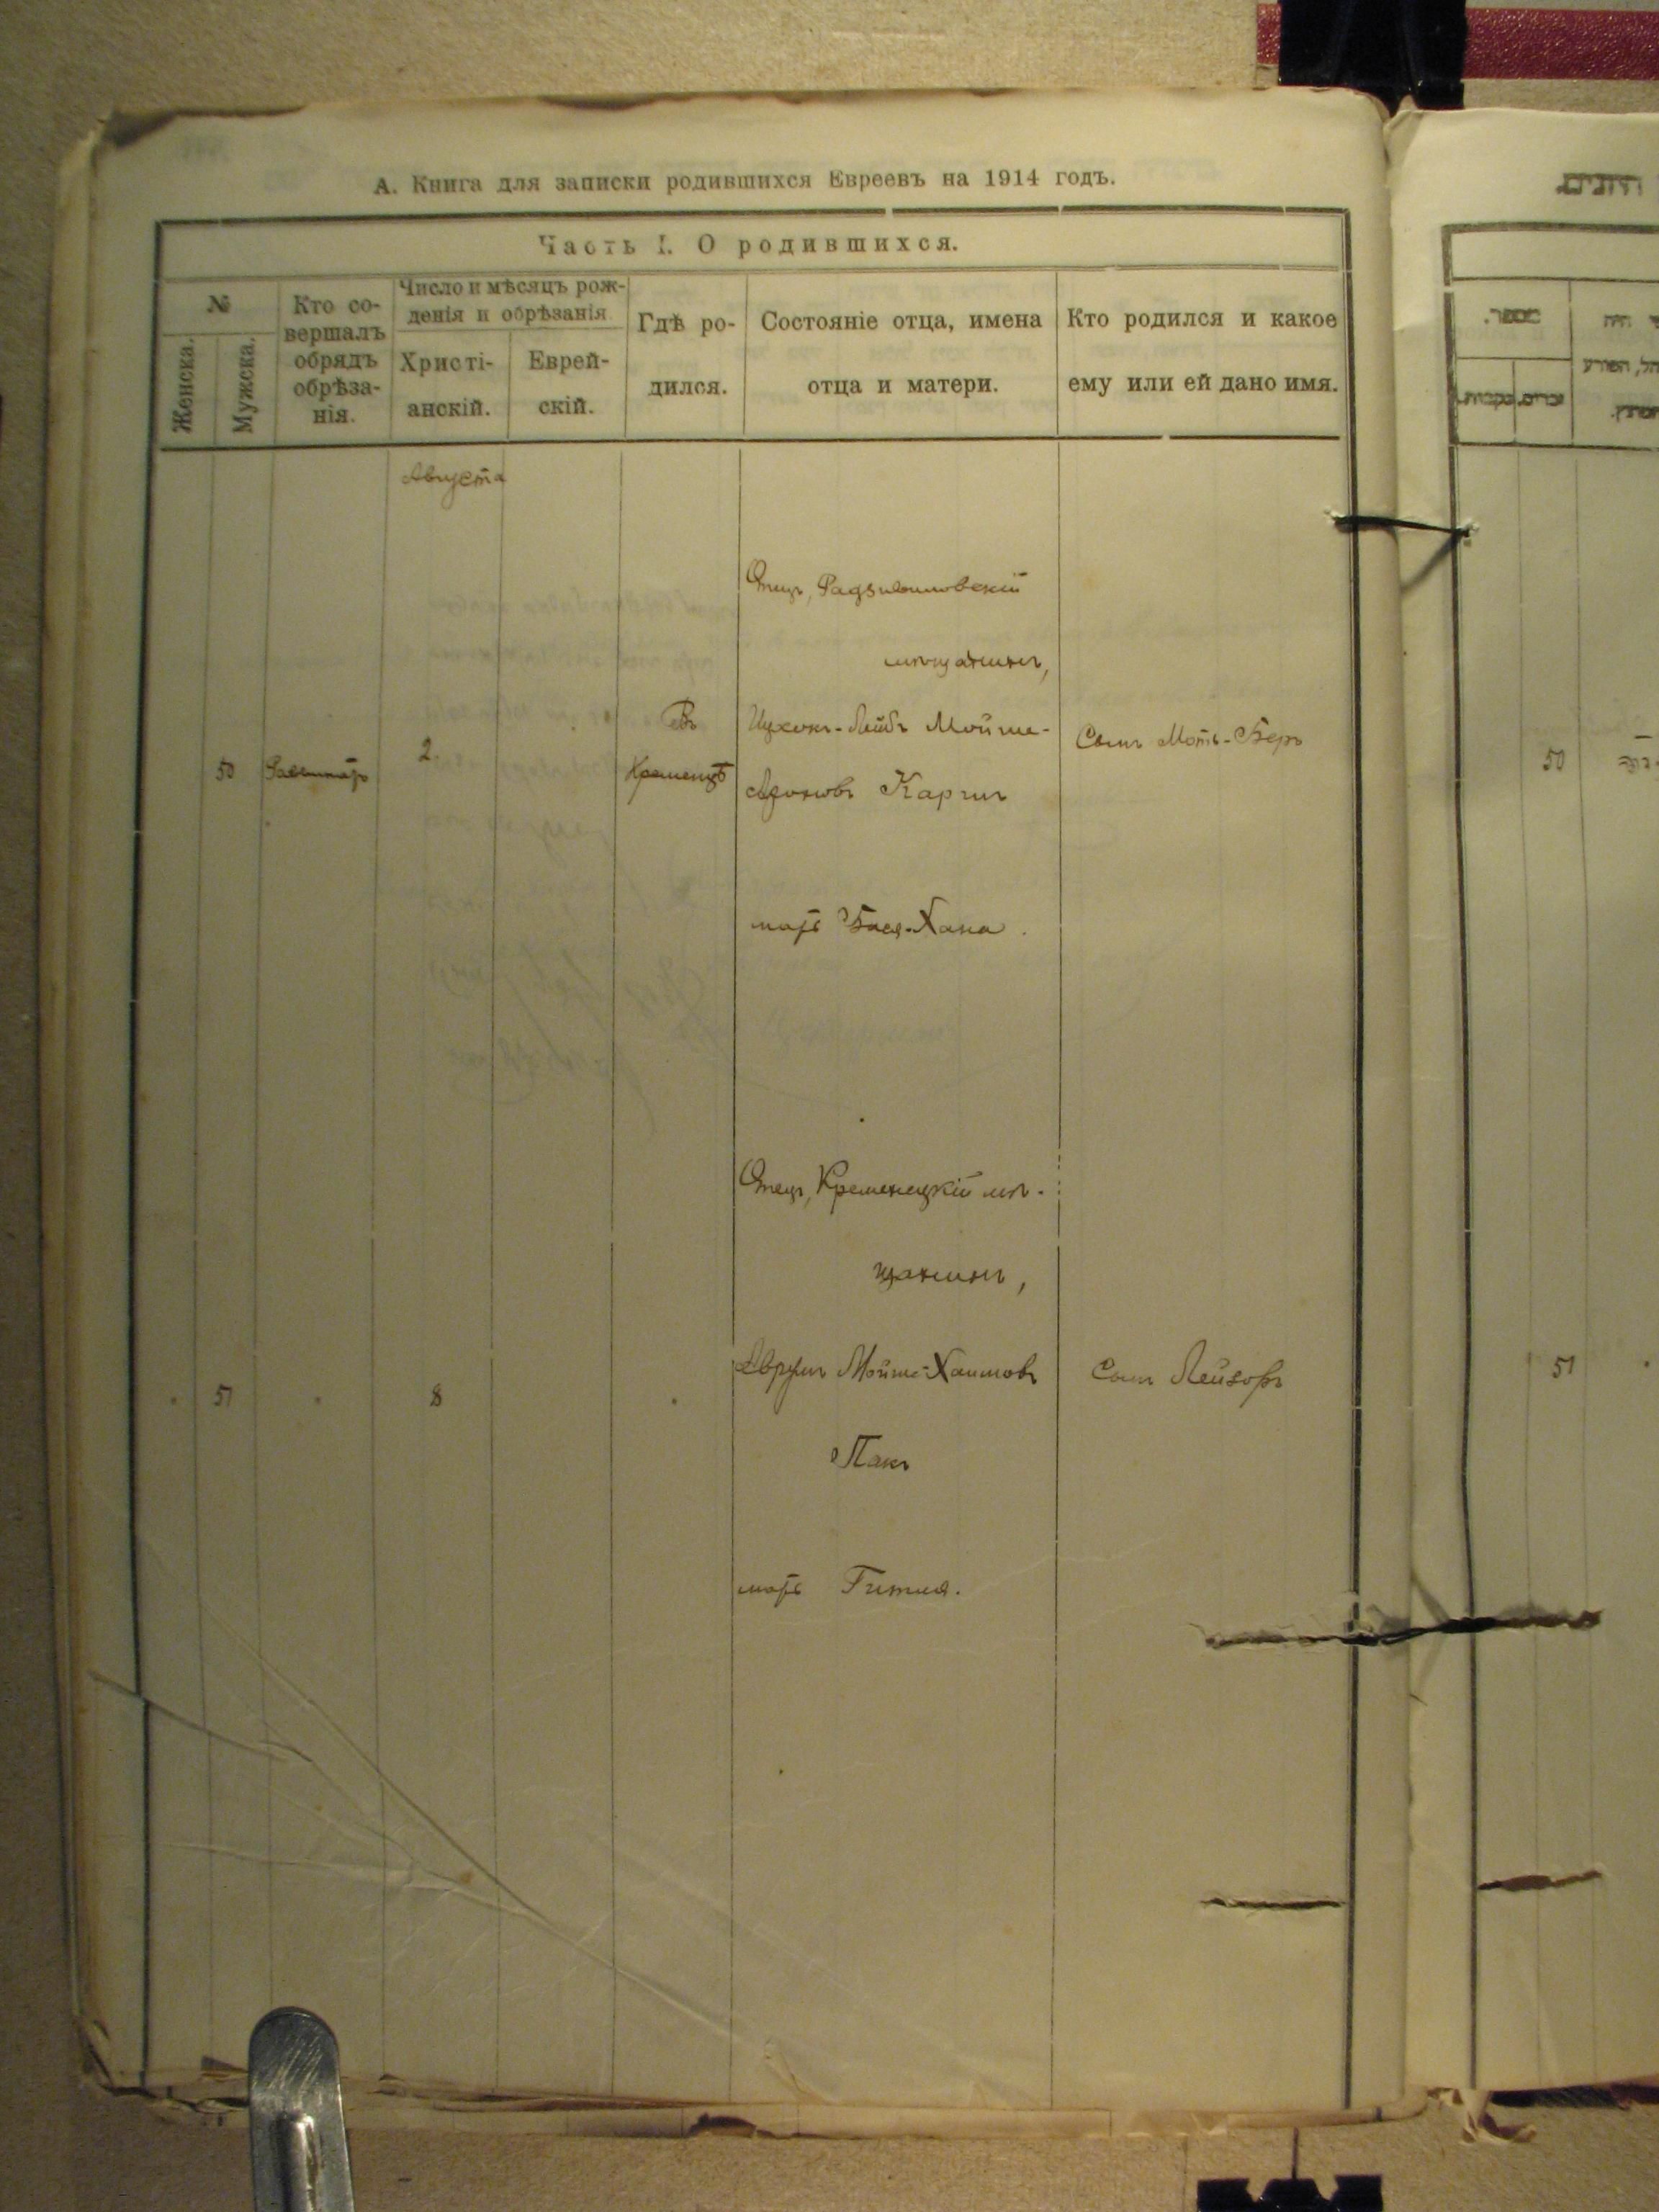 А. Книга для записки родившихся Евреевъ на 1914 годъ.
Часть I. О родившихся.
№
Женска.
Мужска.
Кто со-
вершалъ
обрядъ
обрѣза-
нія.
Число и мѣсяцъ рож-
денія и обрѣзанія
Христі-
анскій.
Еврей-
скій.
Гдѣ ро-
дился.
Состояніе отца, имена
отца и матери.
Кто родился и какое
ему или ей дано имя.
Августа
50
2.
Въ
Кременцѣ
Отецъ, Радзивиловскій
мѣщанинъ,
Ицхокъ-Лейбъ Мойше-
Ароновъ
мать Бася-Хана.
Сынъ Моть-Беръ
51
8
Отецъ, Кременецкій мѣ-
щанинъ,
Аврумъ Мойше-Хаимовъ
Пакъ
мать Гитля.
Сынъ Лейзоръ
50
51